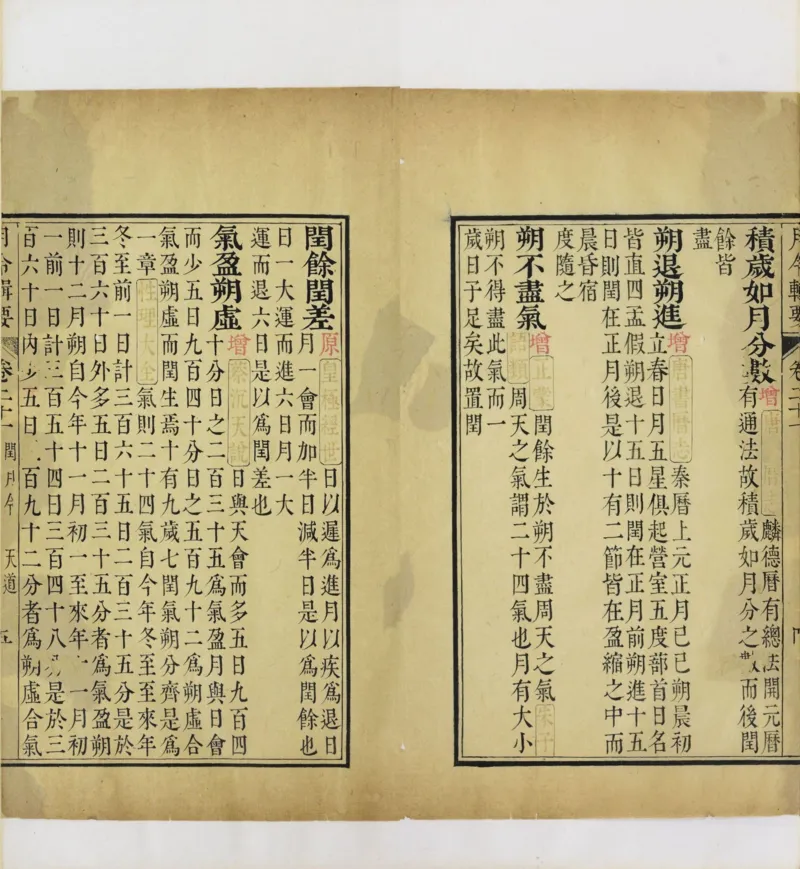 月令輯要 卷二十一
積歲如月分數 增 麟德曆有總法開元曆
有通法故積歲如月分之數而後閏
餘皆
盡
朔退朔進 增 秦曆上元正月己巳朔晨初
立春日月五星俱起營室五度蔀首日名
皆直四孟假朔退十五日則閏在正月前朔進十五
日則閏在正月後是以十有二節皆在盈縮之中而
晨昏宿
度隨之
朔不盡氣 增 正蒙 閏餘生於朔不盡周天之氣 朱子
周天之氣謂二十四氣也月有大小
朔不得盡此氣而一
歲日于足矣故置閏
閏餘閏差 原 皇極經世 日以遲爲進月以疾爲退日
月一會而加半日減半日是以爲閏餘也
日一大運而進六日月一大
運而退六日是以爲閏差也
氣盈朔虛 增 日與天會而多五日九百四
十分日之二百三十五爲氣盈月與日會
而少五日九百四十分日之五百九十二爲朔虛合
氣盈朔虛而閏生焉十有九歲七閏氣朔分齊是爲
一章 性理大全 氣則二十四氣自今年冬至至來年
冬至前一日計三百六十五日二百三十五分是於
三百六十日外多五日二百三十五分者爲氣盈朔
則十二月朔自今年十一月初一至來年十一月初
一前一日計三百五十四日三百四十八分是於三
百六十日內少五日五百九十二分者爲朔虛合氣
月令輯要 卷二十一 閏月令 天道 五